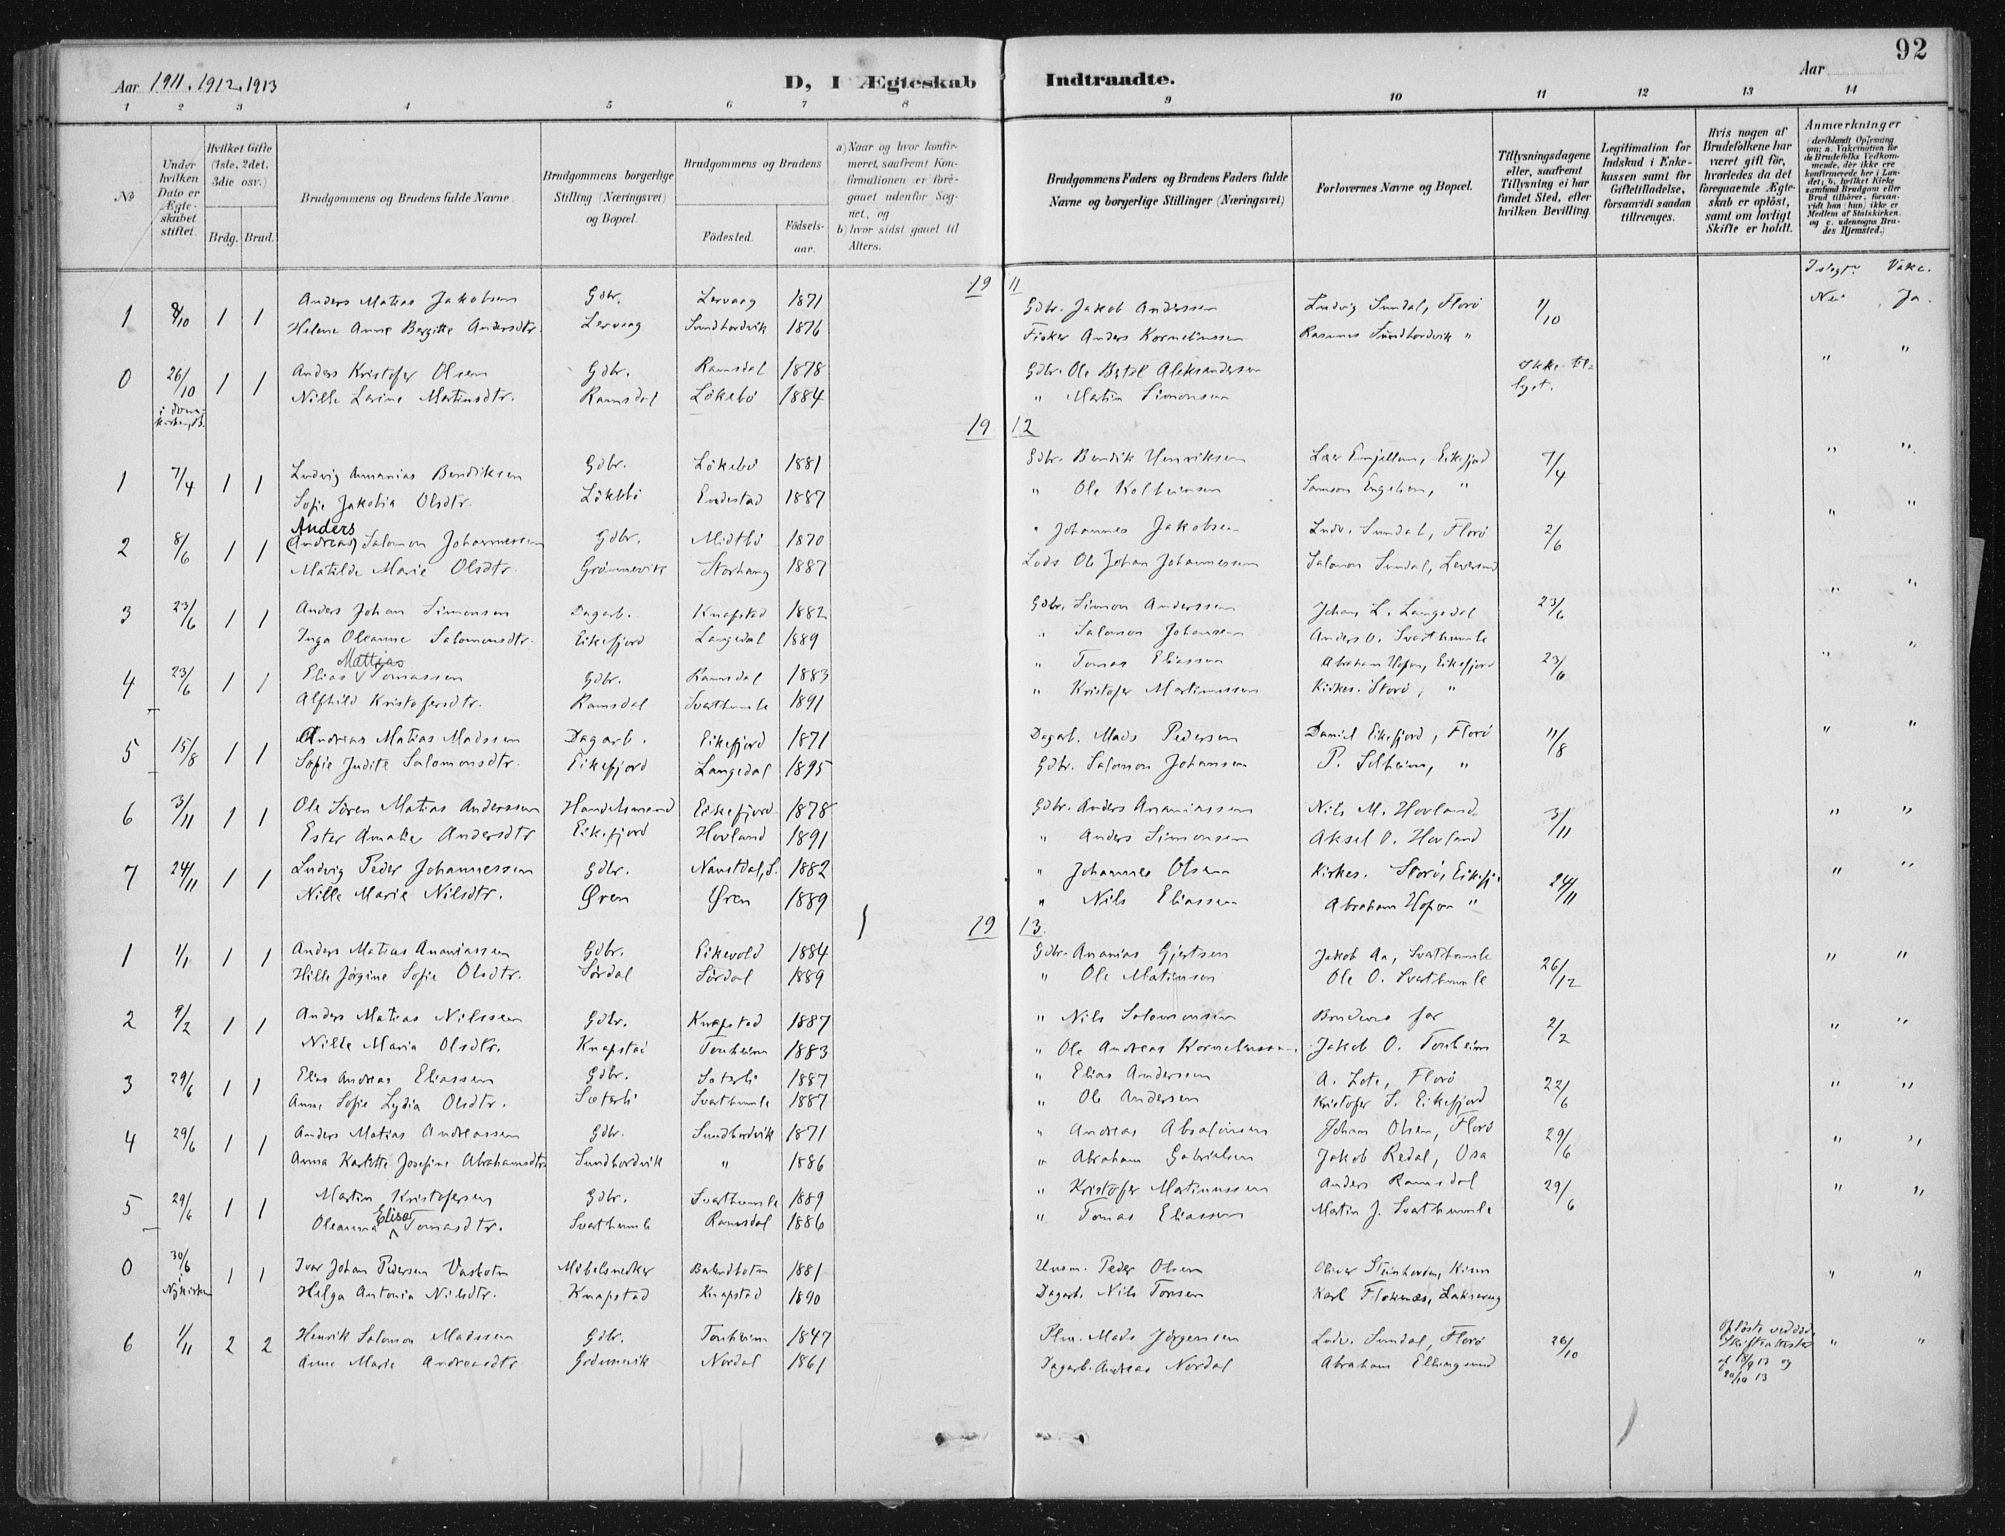 92
Aar 1911. 1912. 1913
D, I Ægteskab Indtraadte.
Aar
1 2 3 4 5 6 7 8 9 10 11 12 13 14
No
Under hvilken Dato er Ægteskabet stiftet.
Hvilket Gifte (1ste. 2det. 3die osv.)
Brdg. Brud.
Brudgommens og Brudens fulde Navne.
Brudgommens borgerlige Stilling (Næringsvei) og Bopæl.
Brudgommens og Brudens
Fødested. Fødselsaar.
a) Naar og hvor konfirmeret, saafremt Konfirmationen er foregaaet udenfor Sognet, og
b) hvor sidst gaaet til Alters.
Brudgommens Faders og Brudens Faders fulde Navne og borgerlige Stillinger (Næringsvei)
Forlovernes Navne og Bopæl.
Tillysningsdagene eller, saafremt Tillysning ei har fundet Sted, efter hvilken Bevilling.
Legitimation for Indskud i Enkekassen samt for Giftetilladelse, forsaavidt saadan tiltrænges.
Hvis nogen af Brudefolkene har været gift før, hvorledes da det foregaaende Ægteskab er opløst, samt om lovligt Skifte er holdt.
Anmærkninger (deriblandt Oplysning om: a. Vakcination for de Brudefolks Vedkommende, der ikke ere konfirmerede her i Landet, b. hvilket Kirkesamfund Brudgom eller Brud tilhører, forsaavidt han (hun) ikke er Medlem af Statskirken, og c. udensogns Brudes Hjemsted.)
1911
Islegt. Vakc.
1 8/10 1 1 Anders Matias Jakobsen Gdbr. Lervaag 1871 Gdbr. Jakob Anderssen Ludvig Sundal, Florö 1/10 Nei Ja.
Helene Anne Bergitte Andersdtr. Lervaag Sundhordvik 1876 Fisker Anders Korneliussen Rasmus Sundhordvik "
0 26/10 1 1 Anders Kristofer Olsen Gdbr. Ramsdal 1878 Gdbr. Ole Bertel Aleksandersen Ikke til- " "
Nille Larine Martinsdtr. Ramsdal Lökebö 1884 " Martin Simonsen lyst.
1912
1 7/4 1 1 Ludvig Ananias Bendiksen Gdbr. Lökebö 1881 Gdbr. Bendik Henriksen Eikefjord 7/4 " "
Sofie Jakobia Olsdtr. Lökebö Endestad 1887 " Ole Kolbeinsen Samson Engelsen, "
2 8/6 1 1 Anders (Andreas) Salomon Johannessen Gdbr. Midtbö 1870 " Johannes Jakobsen Ludv. Sundal, Florö 2/6 " "
Matilde Marie Olsdtr. Grönnevik Storhaug 1887 Lods Ole Johan Johannessen Salomon Sundal,
3 23/6 1 1 Anders Johan Simonsen Dagarb. Knapstad 1882 Gdbr. Simon Anderssen Johan L. Langedal 23/6 " "
Inga Oleanne Salomonsdtr. Eikefjord Langedal 1889 " Salomon Johansen Anders O. Svarthumle
4 23/6 1 1 Elias Mattias Tomassen Gdbr. Ramsdal 1883 " Tomas Eliassen Abraham Hopen, Eikefjord 23/6 " "
Alfhild Kristofersdtr. Ramsdal Svarthumle 1891 " Kristofer Martinussen Kirkes. Storö, "
5 15/8 1 1 Andreas Matias Madssen Dagarb. Eikefjord 1871 Dagarb. Mads Pedersen Daniel Eikefjord, Florö 11/8 " "
Sofie Judite Salomonsdtr. Eikefjord Langedal 1895 Gdbr. Salomon Johansen P. Solheim, "
6 3/11 1 1 Ole Sören Matias Anderssen Handelsmand Eikefjord 1878 Gdbr. Anders Ananiassen Nils M. Hovland 3/11 " "
Ester Amalie Andersdtr Eikefjord Hovland 1891 " Anders Simonsen Aksel O. Hovland
7 24/11 1 1 Ludvig Peder Johannessen Gdbr. Navstdal, S. 1882 " Johannes Olsen Kirkes. Storö, Eikefj. 24/11 " "
Nille Marie Nilsdtr. Øren Øren 1889 " Nils Eliassen Abraham Hopen "
1913.
1 1/1 1 1 Anders Matias Ananiassen Gdbr. Eikevold 1884 Gdbr. Ananias Gjertsen Jakob Aa, Svarthumle 26/12 " "
Hille Jörgine Sofie Olsdtr. Sördal Sördal 1889 " Ole Matiasson Ole O. Svarthumle
2 9/2 1 1 Anders Matias Nilssen Gdbr. Knapstad 1887 " Nils Salomonsen Brudens far 2/2 " "
Nille Maria Olsdtr. Knapstad Tonheim 1883 " Ole Andreas Korneliussen. Jakob O. Tonheim
3 29/6 1 1 Elias Andreas Eliassen Gdbr. Seterli 1887 " Elias Anderssen A. Lote, Florö 22/6 " "
Anne Sofie Lydia Olsdtr. Sæterli Svarthumle 1887 " Ole Andersen Kristofer S. Eikefjord
4 29/6 1 1 Anders Matias Andreassen Gdbr. Sundhordvik 1871 " Andreas Absalonsen Johan Olsen, Florö 29/6 " "
Anna Karlotte Josefine Abrahamsdtr Sundhordvik " 1886 " Abraham Gabrielsen Jakob Redal, Osa
5 29/6 1 1 Martin Kristofersen Gdbr. Svarthumle 1889 " Kristofer Martinussen Anders Ramsdal 29/6 " "
Oleanna Elise Tomasdtr. Svarthumle Ramsdal 1886 " Tomas Eliassen Martin J. Svarthumle
0 30/6 i Nykirken 1 1 Ivar Johan Pedersen Vasbotn Möbelsnedker Botnbotn 1881 Husm. Peder Olsen Oliver Steinhovden, Kinn " "
Helga Antonia Nilsdtr. Knapstad Knapstad 1890 Dagarb. Nils Tonsen Karl Flokenæs,
6 1/11 2 2 Henrik Salomon Madssen Gdbr. Tonheim 1847 Plm. Mads Jörgensen Ludv. Sundal, Florö 26/10 Oplöst ved död. Skifteattester af 18/9 13 og 20/10 13 " "
Anne Marie Andreasdtr Grönnevik Nordal 1861 Dagarb. Andreas Nordal Abraham Ellingsund